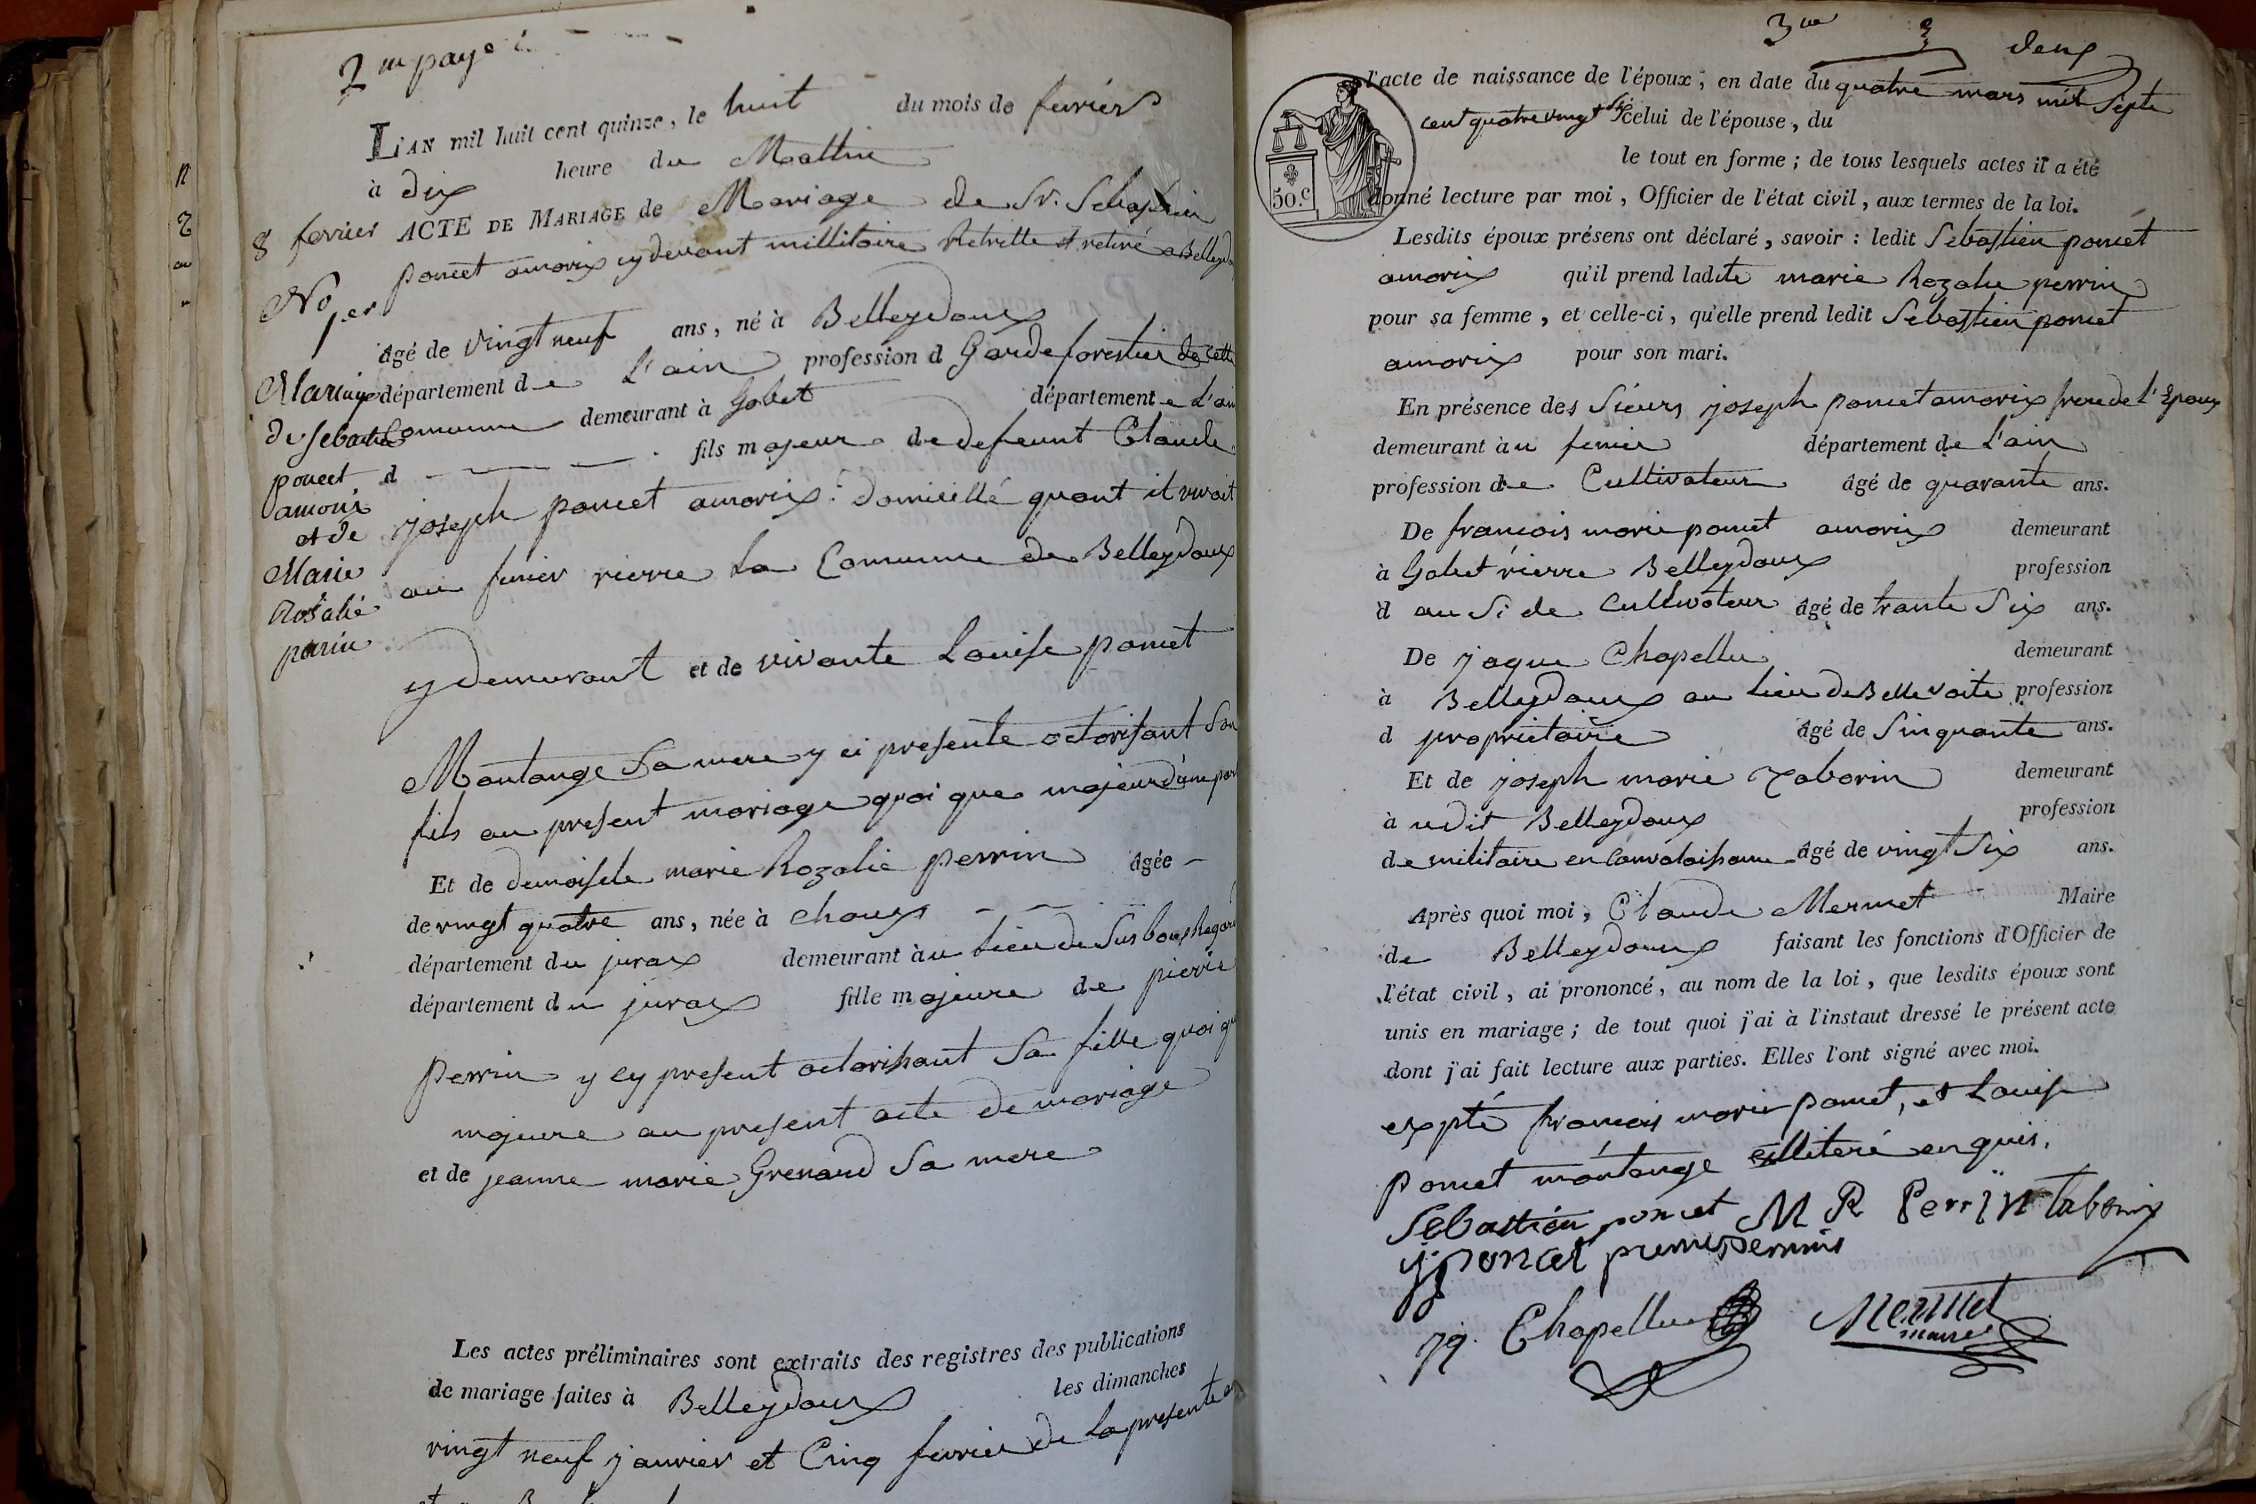 2me page
L'AN mil huit cent quinze, le huit du mois de fevriers
à dix heure du Mattin
8 fevrier ACTE DE MARIAGE de Mariage de Sr. Sebastien
poncet amorix cy devant millitaire Retrette et retiré a Belleydo
No 1er
agé de vingt neuf ans, né à Belleydoux
département de L'ain profession d Garde forestier de cette
Comune demeurant à Gobet département e L'ain
d fils majeur de defeunt Claude
joseph poncet amorix domicillé quant il vivoit
au fenier rierre la Comune de Belleydoux
y demurant et de vivante Louise poncet
Mariage
de sebastien
poncet
amorix
et de
Marie
Rosalie
perin
Montange Sa mere y ci presente octorisant Son
fils au present mariage quoi que majeur d'une par
Et de demoisele marie Rozalie perrin agée
de vingt quatre ans, née à choux
département du jurax demeurant àu Lieu de Sus boux Regard
département du jurax fille majeure de pierre
perrin y cy present octorisant Sa fille quoi qu
majeure au present acte de mariage
et de jeanne marie Grenard Sa mere
Les actes préliminaires sont extraits des registres des publications
de mariage faites à Belleydoux les dimanches
vingt neuf janvier et Cinq fevrier de la presente
3me 3 deux
l'acte de naissance de l'époux, en date du quatre mars mil Septe
cent quatre vingt Six celui de l'épouse, du
le tout en forme ; de tous lesquels actes il a été
donné lecture par moi, Officier de l'état civil, aux termes de la loi.
50.c
Lesdits époux présens ont déclaré, savoir : ledit Sebastien poncet
amorix qu'il prend ladite marie Rozalie perrin
pour sa femme, et celle-ci, qu'elle prend ledit Sebastien poncet
amorix pour son mari.
En présence des Sieurs joseph poncet amorix frere de l'Epoux
demeurant àu fenier département de L'ain
profession de Cultivateur âgé de quarante ans.
De francois marie poncet amorix demeurant
à Gobet rierre Belleydoux profession
d au Si de Cultivateur âgé de trante Six ans.
De jaque Chapellu demeurant
à Belleydoux au lieu de Belle voite profession
d proprietaire âgé de Sinquante ans.
Et de joseph marie Taborin demeurant
à udit Belleydoux profession
de militaire en Convaloissanse âgé de vingt Six ans.
Après quoi moi, Claude Mermet Maire
de Belleydoux faisant les fonctions d'Officier de
l'état civil, ai prononcé, au nom de la loi, que lesdits époux sont
unis en mariage ; de tout quoi j'ai à l'instant dressé le présent acte
dont j'ai fait lecture aux parties. Elles l'ont signé avec moi.
expté francois marie poncet, et Louise
poncet montange illiteré enquis.
Sebastien poncet M R Perrin taborin
j poncet pierre perrin
Jq. Chapellu Mermet
maire